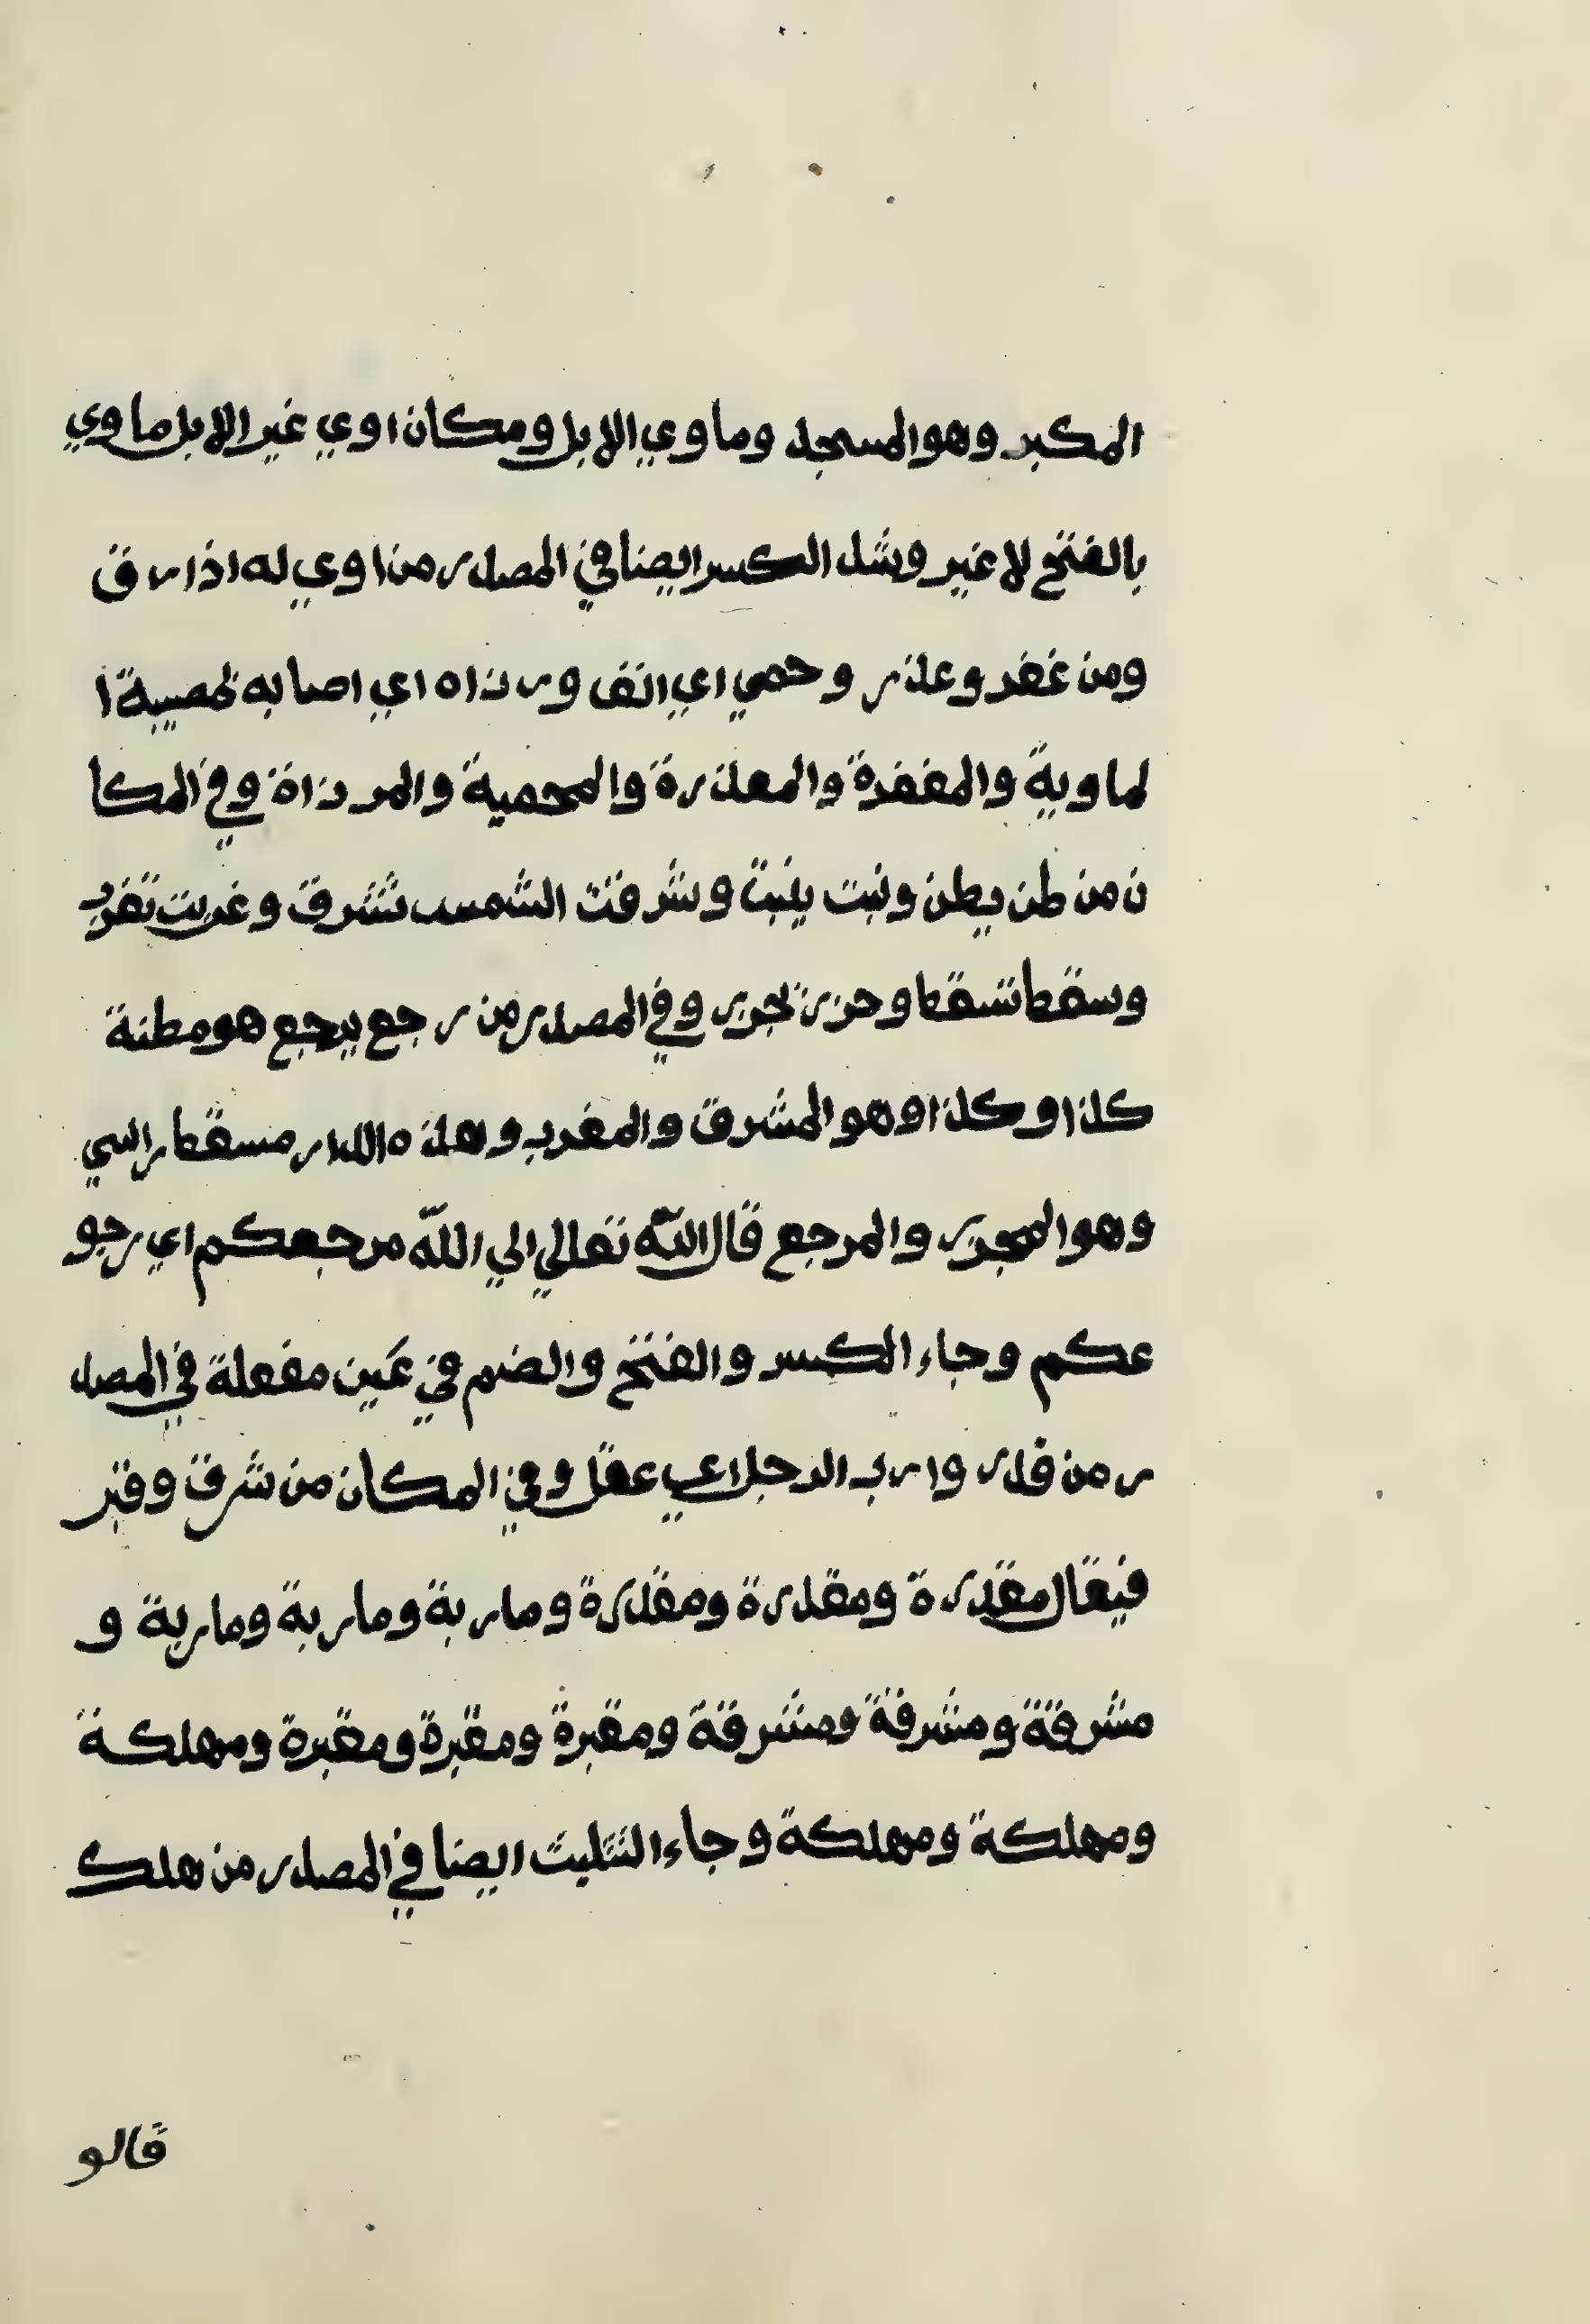 المكبر وهو المسجد وماوي الابل ومكان اوي غير الابل ماوي
بالفتح لا غير وشد الكسر ايضا في المصدر من اوي له اذا رق
ومن غفر وعذر وحمي اي انف ورزاه اي اصابه لمصيبة ا
لماوية والمغفرة والمعذرة والمحمية والمرزاة وفي المكا
ن من طن يطن ونبت ينبت وشرقت الشمس تشرق وغربت تغرب
وسقط تسقط وجزر تجزر وفي المصدر من رجع يرجع هو مطنة
كذا وكذا وهو المشرق والمغرب وهذه الدار مسقط راسي
وهو المجزر والمرجع قال الله تعالي الي الله مرجعكم اي رجو
عكم وجاء الكسر والفتح والضم في عين مفعلة في المصد
ر من قدر وارب الرجل اي عقل وفي المكان من شرق وقبر
فيقال مقدرة ومقدرة ومقدرة وماربة وماربة وماربة و
مشرقة ومشرقة ومشرقة ومقبرة ومقبرة ومقبرة ومهلكة
ومهلكة ومهلكة وجاء التثليث ايضا في المصدر من هلك
قالو